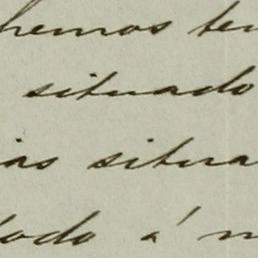 hemos ten
situado
ias situa
todo á m